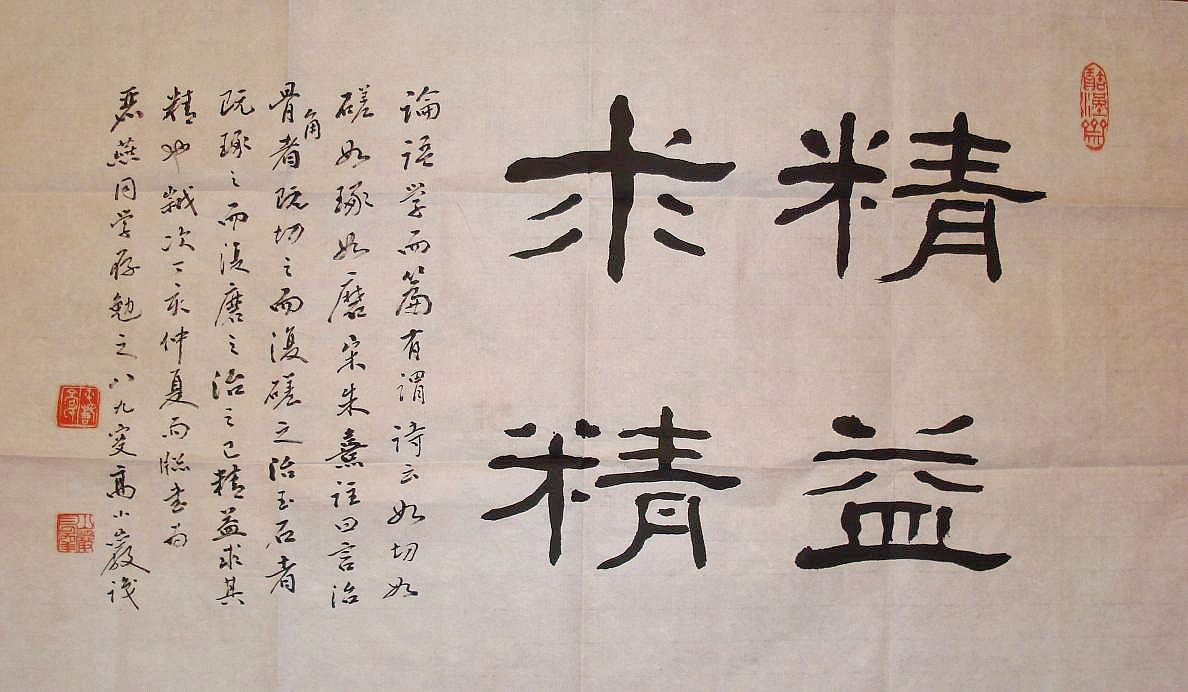 精益
求精
論語学而篇有謂詩云如切如
磋如琢如磨宋朱熹註曰言治
骨角者既切之而復磋之治玉石者
既琢之而復磨之治之已精益求其
精也歲次丁亥仲夏雨牕書为
燕同学存勉之八九叟高小巖识